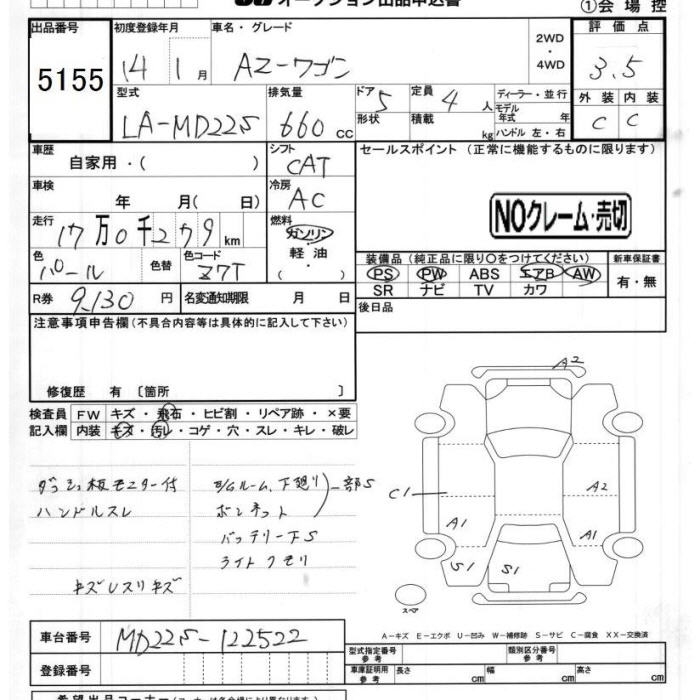 オークション出品申込書
①会場控
出品番号
5155
初度登録年月
14 1月
車名・グレード
AZ-ワゴン
2WD
・
4WD
評価点
3.5
外装 内装
C C
型式
LA-MD22S
排気量
660 cc
ドア 5
形状
定員 4人
積載 kg
ディーラー・並行
モデル年式 年
ハンドル 左・右
車歴
自家用・( )
シフト
CAT
セールスポイント (正常に機能するものに限ります)
NOクレーム・売切
車検
年 月( 日)
冷房
AC
走行
17万0千279km
燃料
ガソリン
・
軽油
・( )
色
パール
色替
色コード
Z7T
装備品 (純正品に限り○をつけてください)
PS PW ABS エアB AW
SR ナビ TV カワ
新車保証書
有・無
R券 9,130円
名変通知期限 月 日
後日品
注意事項申告欄 (不具合内容等は具体的に記入して下さい)
修復歴 有 〔箇所 〕
検査員記入欄
FW キズ・飛石・ヒビ割・リペア跡・×要
内装 キズ・汚レ・コゲ・穴・スレ・キレ・破レ
ダッシュ板モニター付
ハンドルスレ
キズUスリキズ
E/Gルーム、下廻り
ボンネット
一部S
バッテリー下S
ライトクモリ
A2
C1
A2
A1
A1
S1
S1
スペア
A-キズ E-エクボ U-凹み W-補修跡 S-サビ C-腐食 XX-交換済
車台番号
MD22S-122522
登録番号
型式指定番号
参考
類別区分番号
参考
車庫証明用
参考
長さ cm
幅 cm
高さ cm
希望出品コーナー